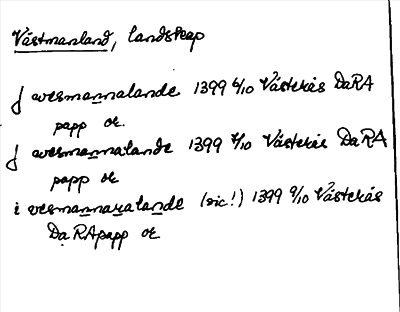 Västmanland, landskap
J wesmannalande 1399 4/10 Västerås DaRA
papp or.
J wesmannalande 1399 7/10 Västerås DaRA
papp or
i wesmannaralande (sic!) 1399 9/10 Västerås
DaRApapp or